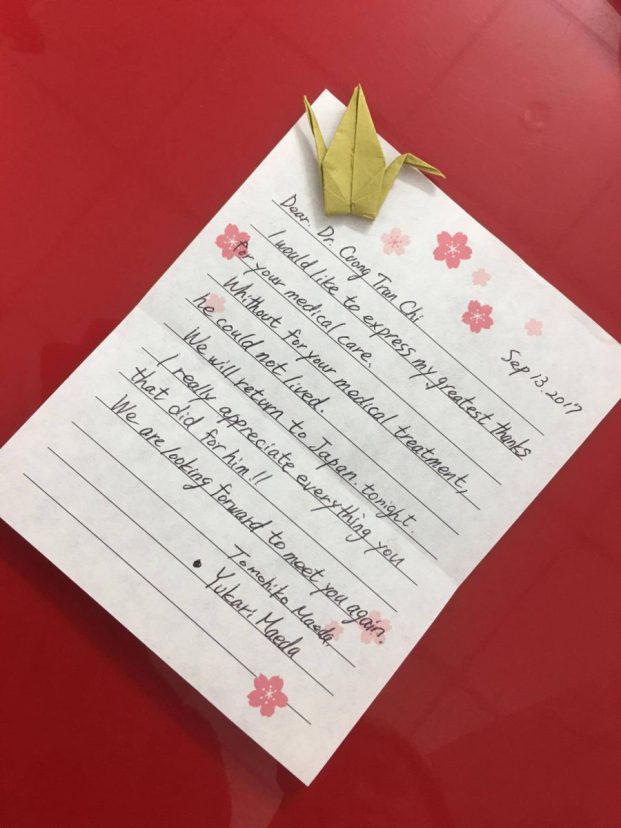 Sep 13. 2017
Dear. Dr. Cuong Tran Chi
I would like to express my greatest thanks
for your medical care.
Whithout for your medical treatment,
he could not lived.
We will return to Japan. tonight.
I really appreciate everything you
that did for him!!
We are looking forward to meet you again.
Tomohiko Maeda.
• Yukari Maeda